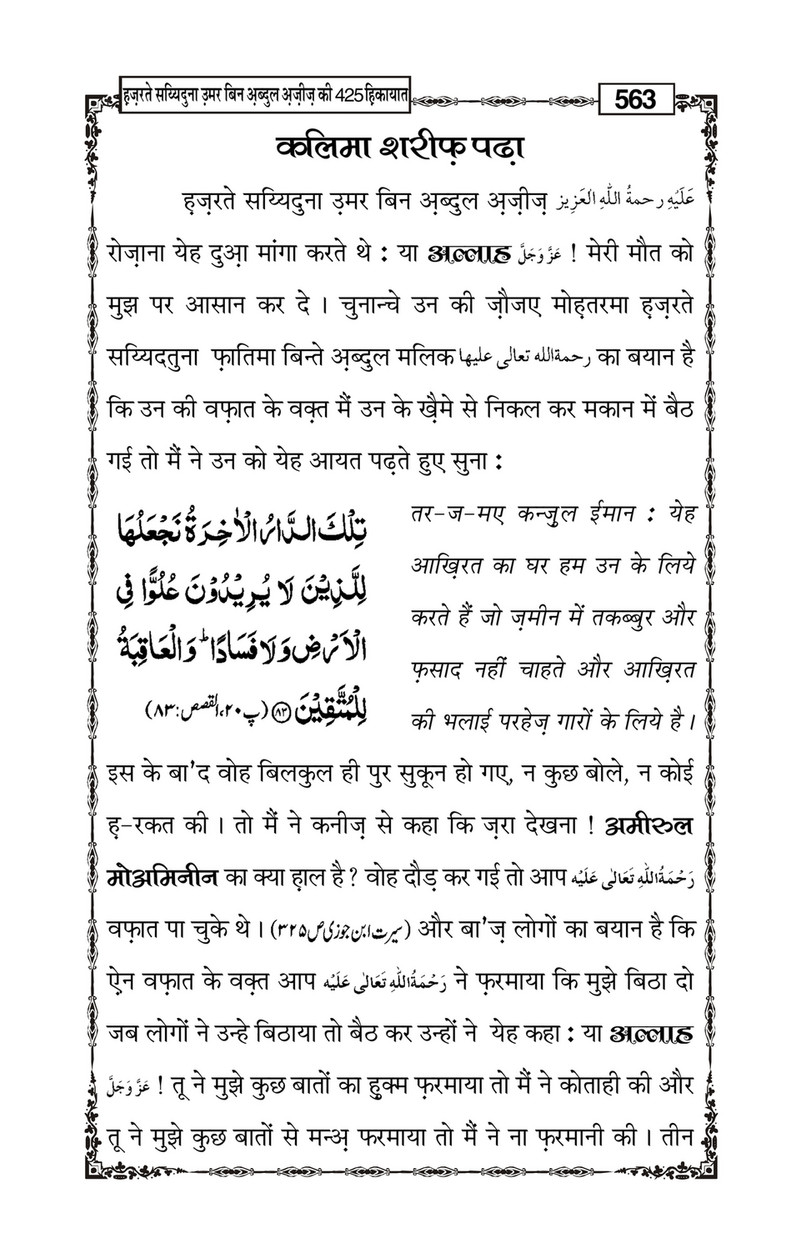 हज़रते सय्यिदुना उ़मर बिन अ़ब्दुल अ़ज़ीज़ की 425 हिकायात
563
कलिमा शरीफ़ पढ़ा
ह़ज़रते सय्यिदुना उ़मर बिन अ़ब्दुल अ़ज़ीज़ عَلَيْهِ رحمةُ اللهِ العَزِيز
रोज़ाना येह दुआ़ मांगा करते थे : या अल्लाह عَزَّ وَجَلَّ ! मेरी मौत को
मुझ पर आसान कर दे । चुनान्चे उन की ज़ौजए मोह़तरमा ह़ज़रते
सय्यिदतुना फ़ातिमा बिन्ते अ़ब्दुल मलिक رحمةالله تعالى عليها का बयान है
कि उन की वफ़ात के वक़्त मैं उन के ख़ैमे से निकल कर मकान में बैठ
गई तो मैं ने उन को येह आयत पढ़ते हुए सुना :
تِلْكَ الدَّارُ الْاٰخِرَةُ نَجْعَلُهَا
لِلَّذِيْنَ لَا يُرِيْدُوْنَ عُلُوًّا فِي
الْاَرْضِ وَلَا فَسَادًا ؕ وَالْعَاقِبَةُ
لِلْمُتَّقِيْنَ ﴿۸۳﴾ (پ۲۰،القصص:۸۳)
तर-ज-मए कन्ज़ुल ईमान : येह
आख़िरत का घर हम उन के लिये
करते हैं जो ज़मीन में तकब्बुर और
फ़साद नहीं चाहते और आख़िरत
की भलाई परहेज़ गारों के लिये है ।
इस के बा'द वोह बिलकुल ही पुर सुकून हो गए, न कुछ बोले, न कोई
ह़-रकत की । तो मैं ने कनीज़ से कहा कि ज़रा देखना ! अमीरुल
मोअमिनीन का क्या ह़ाल है ? वोह दौड़ कर गई तो आप رَحْمَةُاللهِ تَعَالٰى عَلَيْه
वफ़ात पा चुके थे । (سیرت ابن جوزی ص۳۲۵) और बा'ज़ लोगों का बयान है कि
ऐ़न वफ़ात के वक़्त आप رَحْمَةُاللهِ تَعَالٰى عَلَيْه ने फ़रमाया कि मुझे बिठा दो
जब लोगों ने उन्हे बिठाया तो बैठ कर उन्हों ने येह कहा : या अल्लाह
عَزَّ وَجَلَّ ! तू ने मुझे कुछ बातों का हुक्म फ़रमाया तो मैं ने कोताही की और
तू ने मुझे कुछ बातों से मन्अ़ फ़रमाया तो मैं ने ना फ़रमानी की । तीन